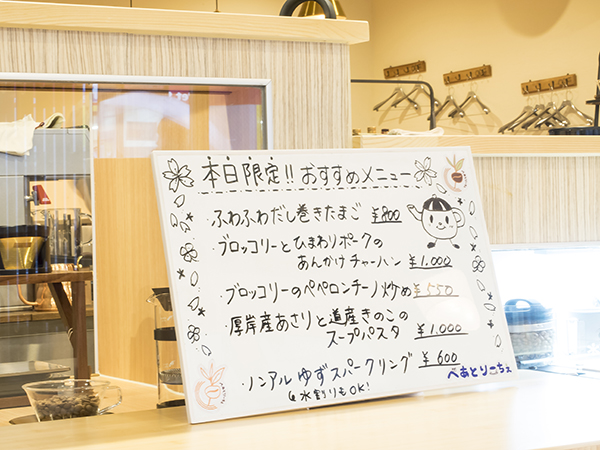 本日限定!! おすすめメニュー
・ふわふわだし巻きたまご ¥800
・ブロッコリーとひまわりポークの
あんかけチャーハン ¥1.000
・ブロッコリーのペペロンチーノ炒め ¥550
・厚岸産あさりと道産きのこの
スープパスタ ¥1.000
・ノンアルゆずスパークリング ¥600
水割りもOK!
べあとりーちぇ